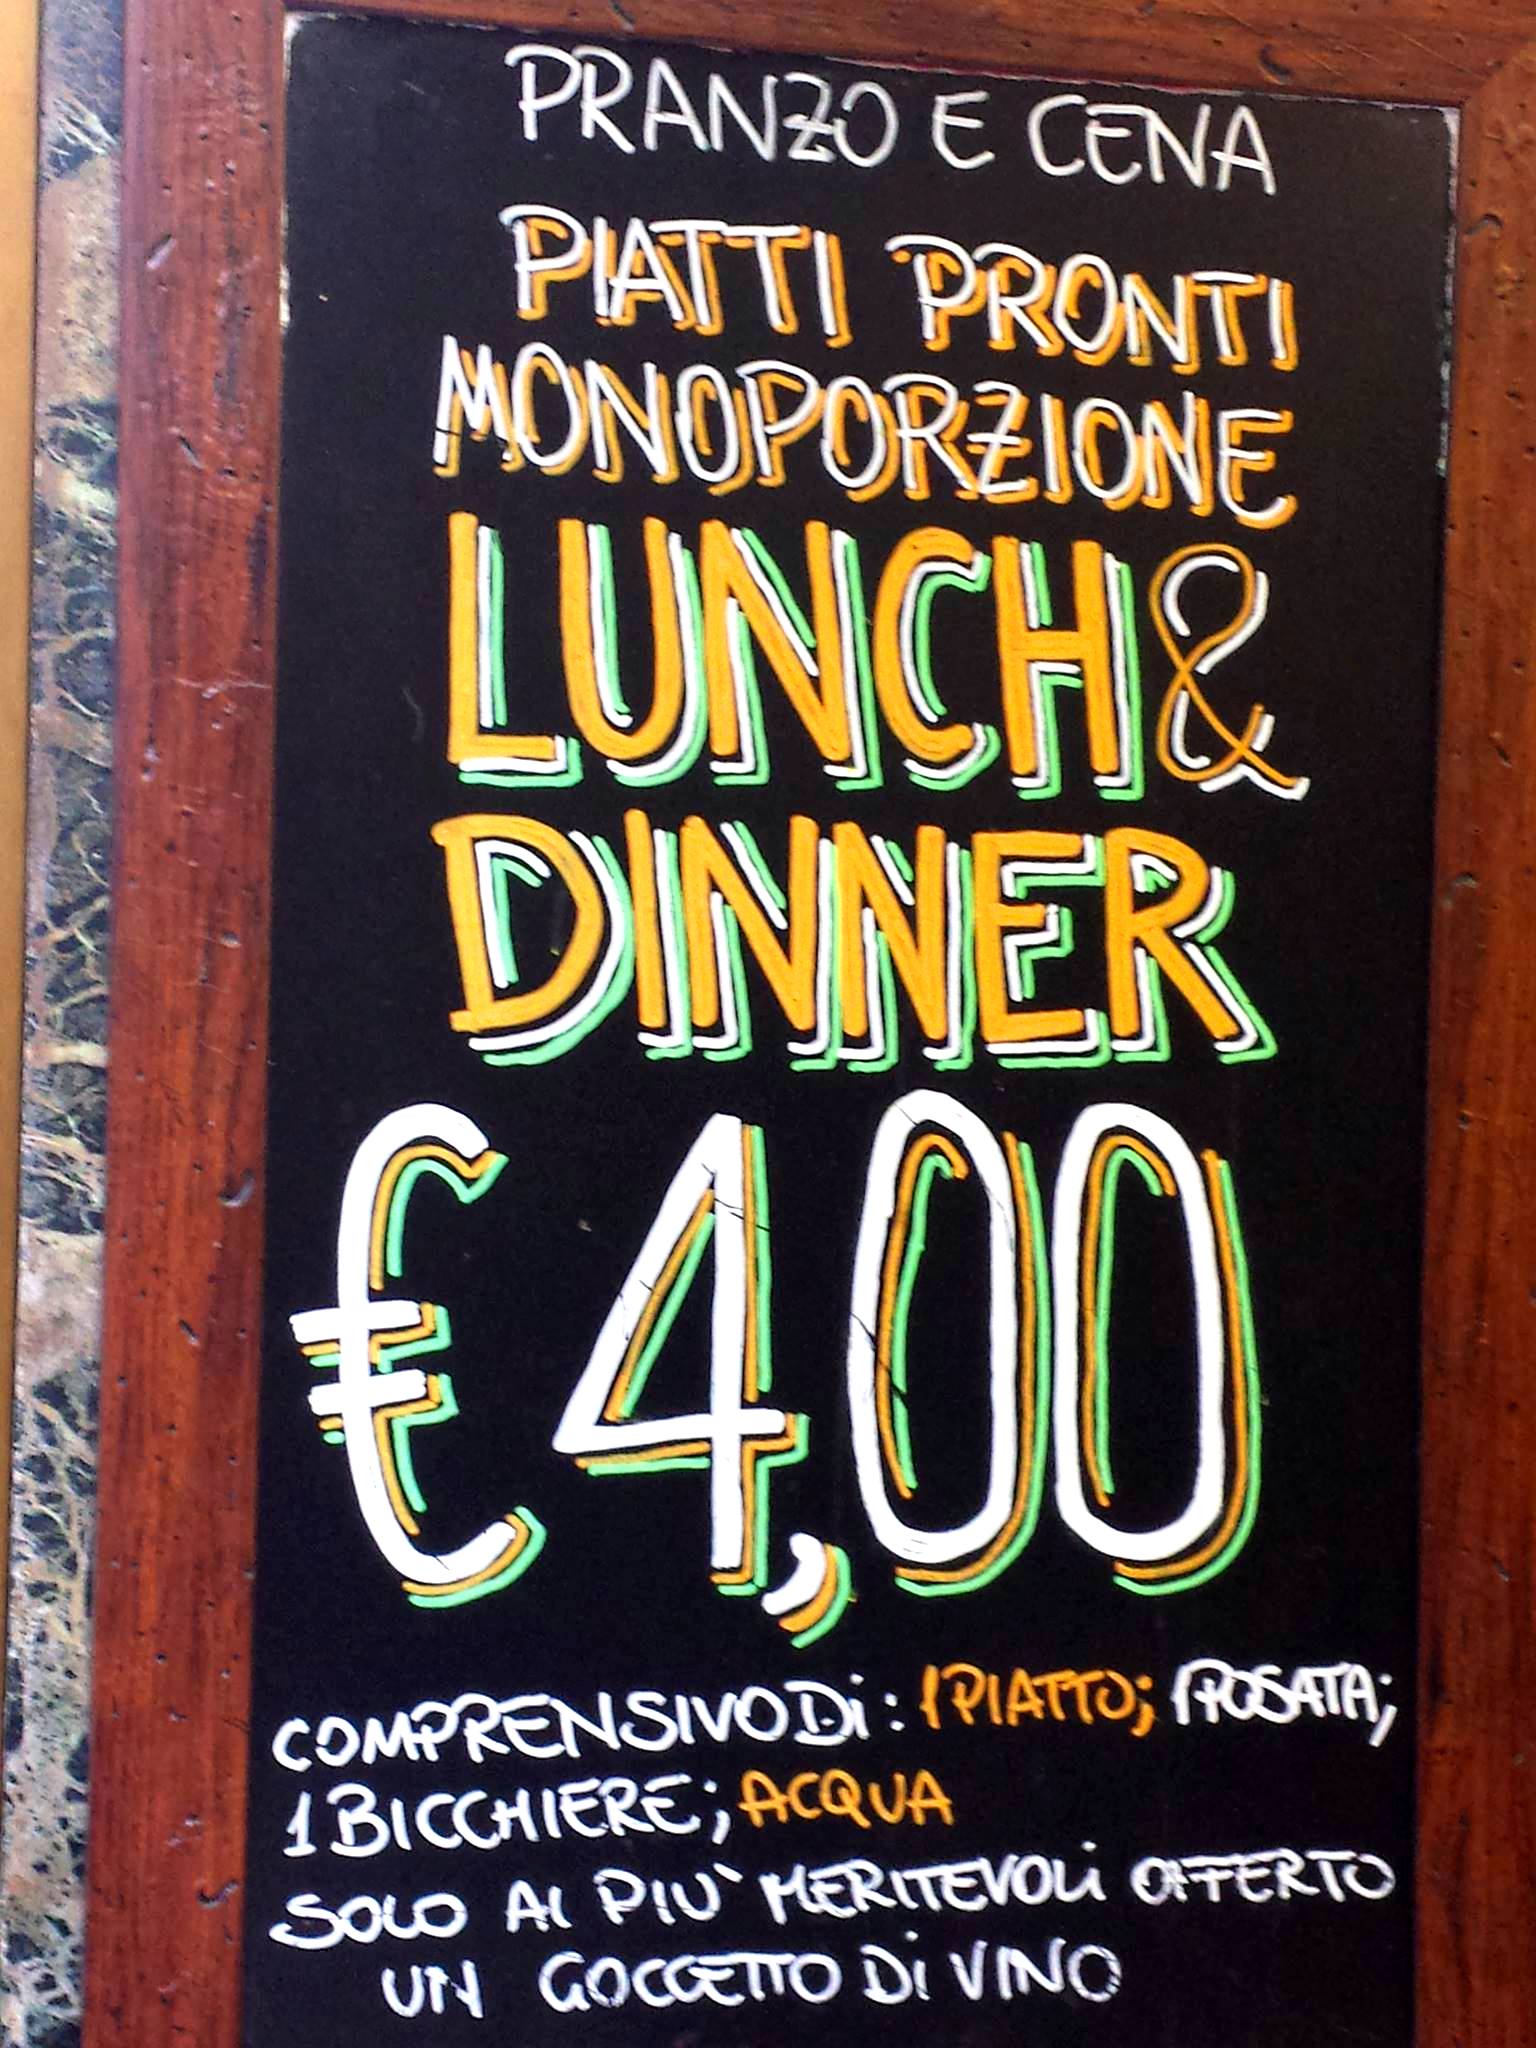 PRANZO E CENA
PIATTI PRONTI
MONOPORZIONE
LUNCH &
DINNER
€ 4,00
COMPRENSIVO Di: 1 PIATTO; 1 POSATA;
1 BICCHIERE; ACQUA
SOLO AI PIU` MERITEVOLi OFFERTO
UN GOCCETTO Di VINO